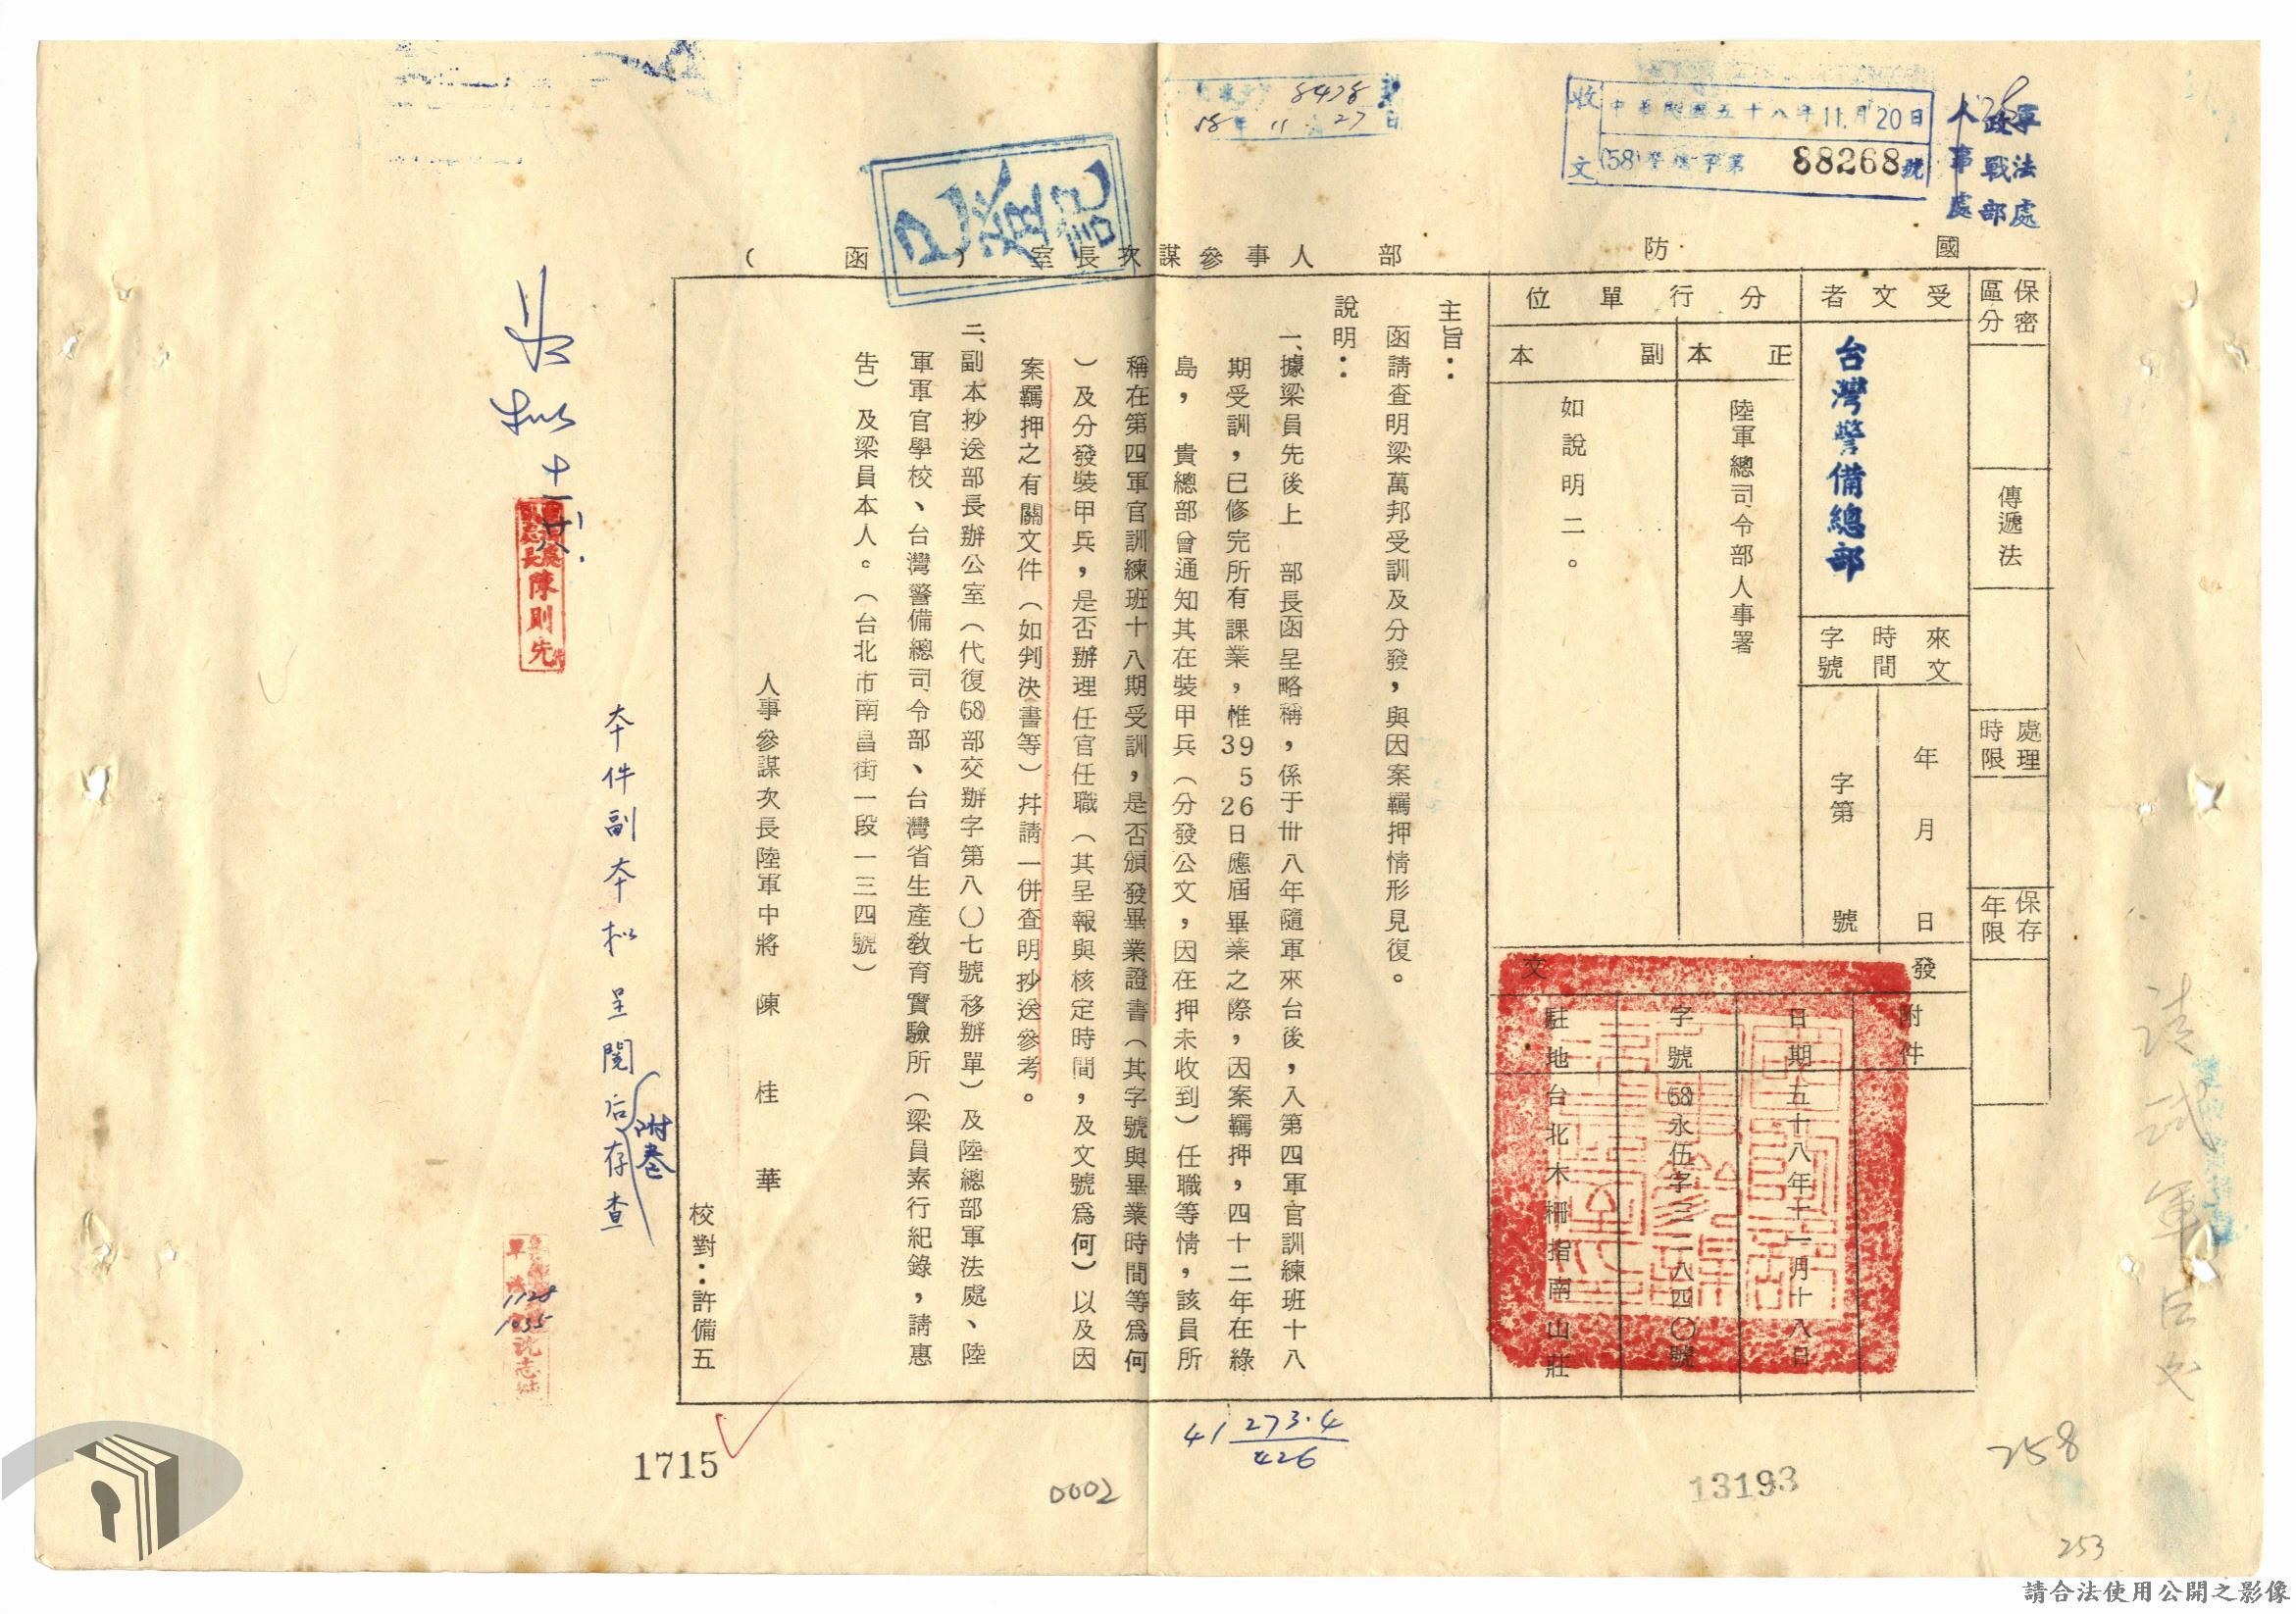 收文
中華民國五十八年11月20日
(58)警儒字第88268號
軍法處
政戰部
人事處
8478
58年11月27日
已登記
國防部人事參謀次長室(函)
保密區分
傳遞法
處理時限
保存年限
受文者
台灣警備總部
來文
時間
字號
年月日
字第號
分行單位
正本
陸軍總司令部人事署
副本
如說明二。
發文
附件
日期
五十八年十一月十八日
字號
(58)永伍字三二八四〇號
駐地
台北木柵指南山莊
主旨:
函請查明梁萬邦受訓及分發,與因案羈押情形見復。
說明:
一、據梁員先後上 部長函呈略稱,係于卅八年隨軍來台後,入第四軍官訓練班十八
期受訓,已修完所有課業,惟39 5 26日應屆畢業之際,因案羈押,四十二年在綠
島, 貴總部曾通知其在裝甲兵(分發公文,因在押未收到)任職等情,該員所
稱在第四軍官訓練班十八期受訓,是否頒發畢業證書(其字號與畢業時間等為何
)及分發裝甲兵,是否辦理任官任職(其呈報與核定時間,及文號為何)以及因
案羈押之有關文件(如判決書等)并請一併查明抄送參考。
二、副本抄送部長辦公室(代復(58)部交辦字第八〇七號移辦單)及陸總部軍法處、陸
軍軍官學校、台灣警備總司令部、台灣省生產教育實驗所(梁員素行紀錄,請惠
告)及梁員本人。(台北市南昌街一段一三四號)
人事參謀次長陸軍中將 陳 桂 華
校對:許備五
本件副本擬呈閱后存查
附卷
陳則先
1128
1035
41 273.4
426
1715
0002
13193
258
253
請合法使用公開之影像